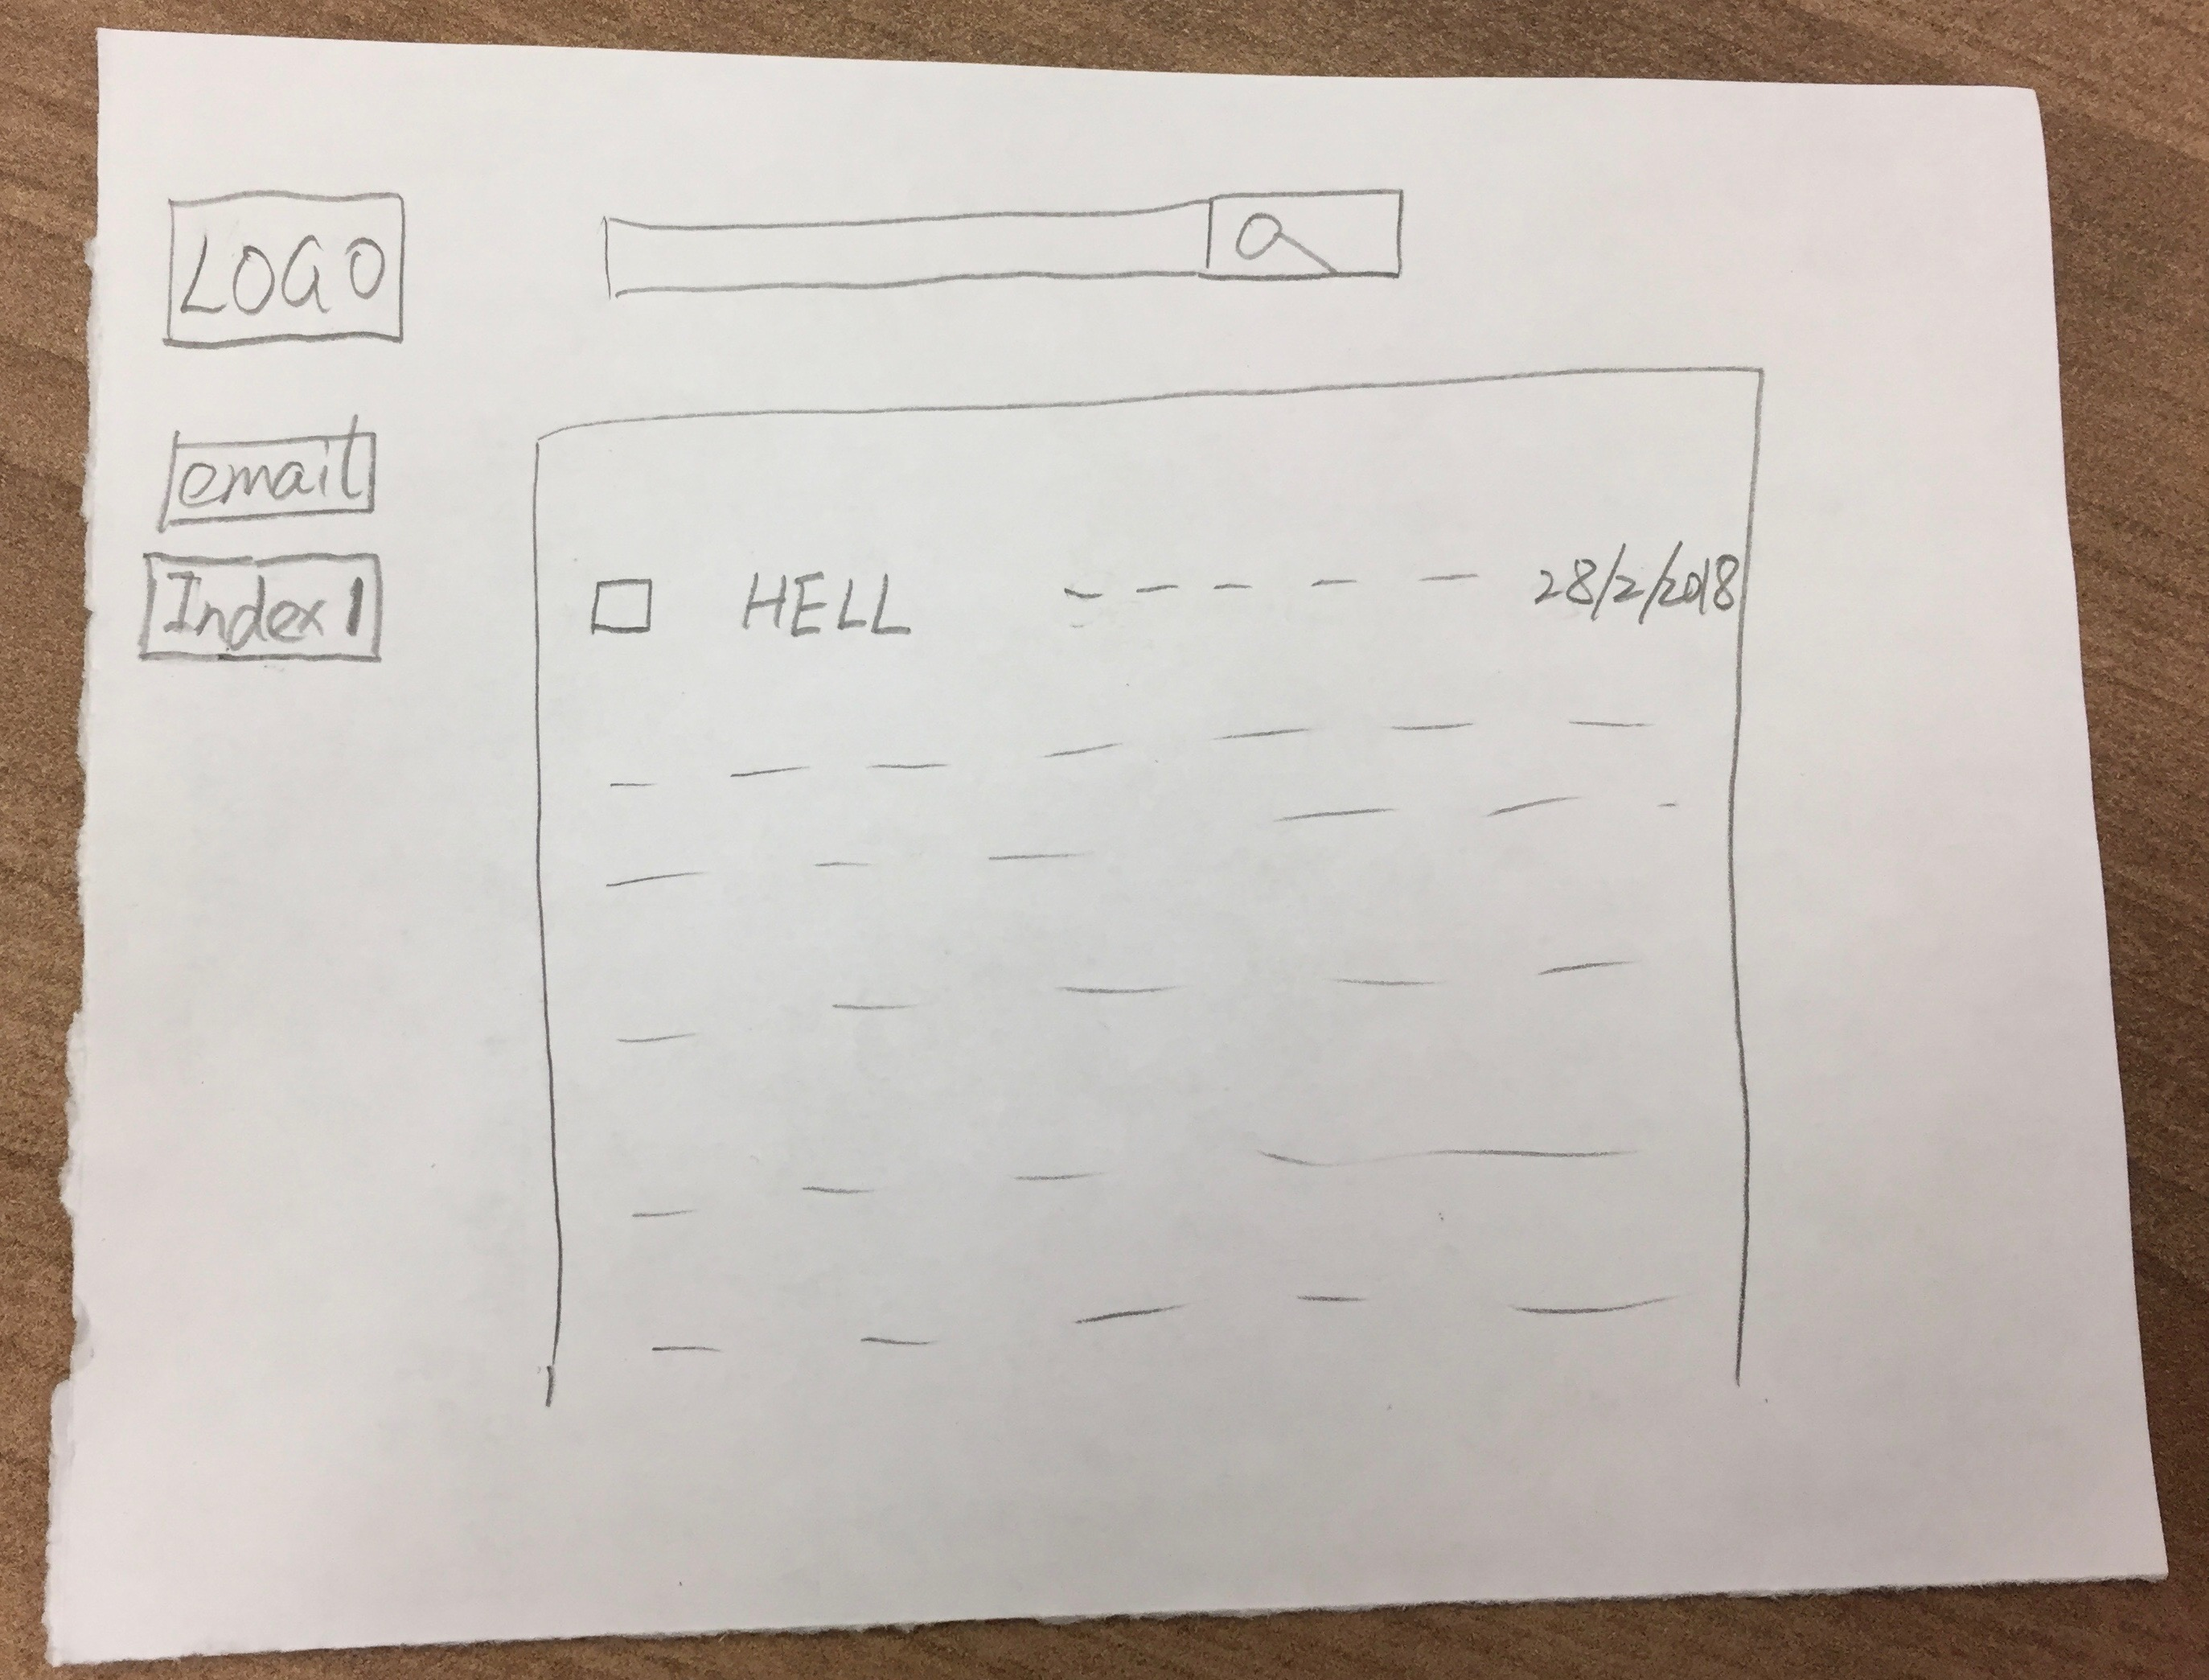 LOGO
email
Index 1
HELL 28/2/2018